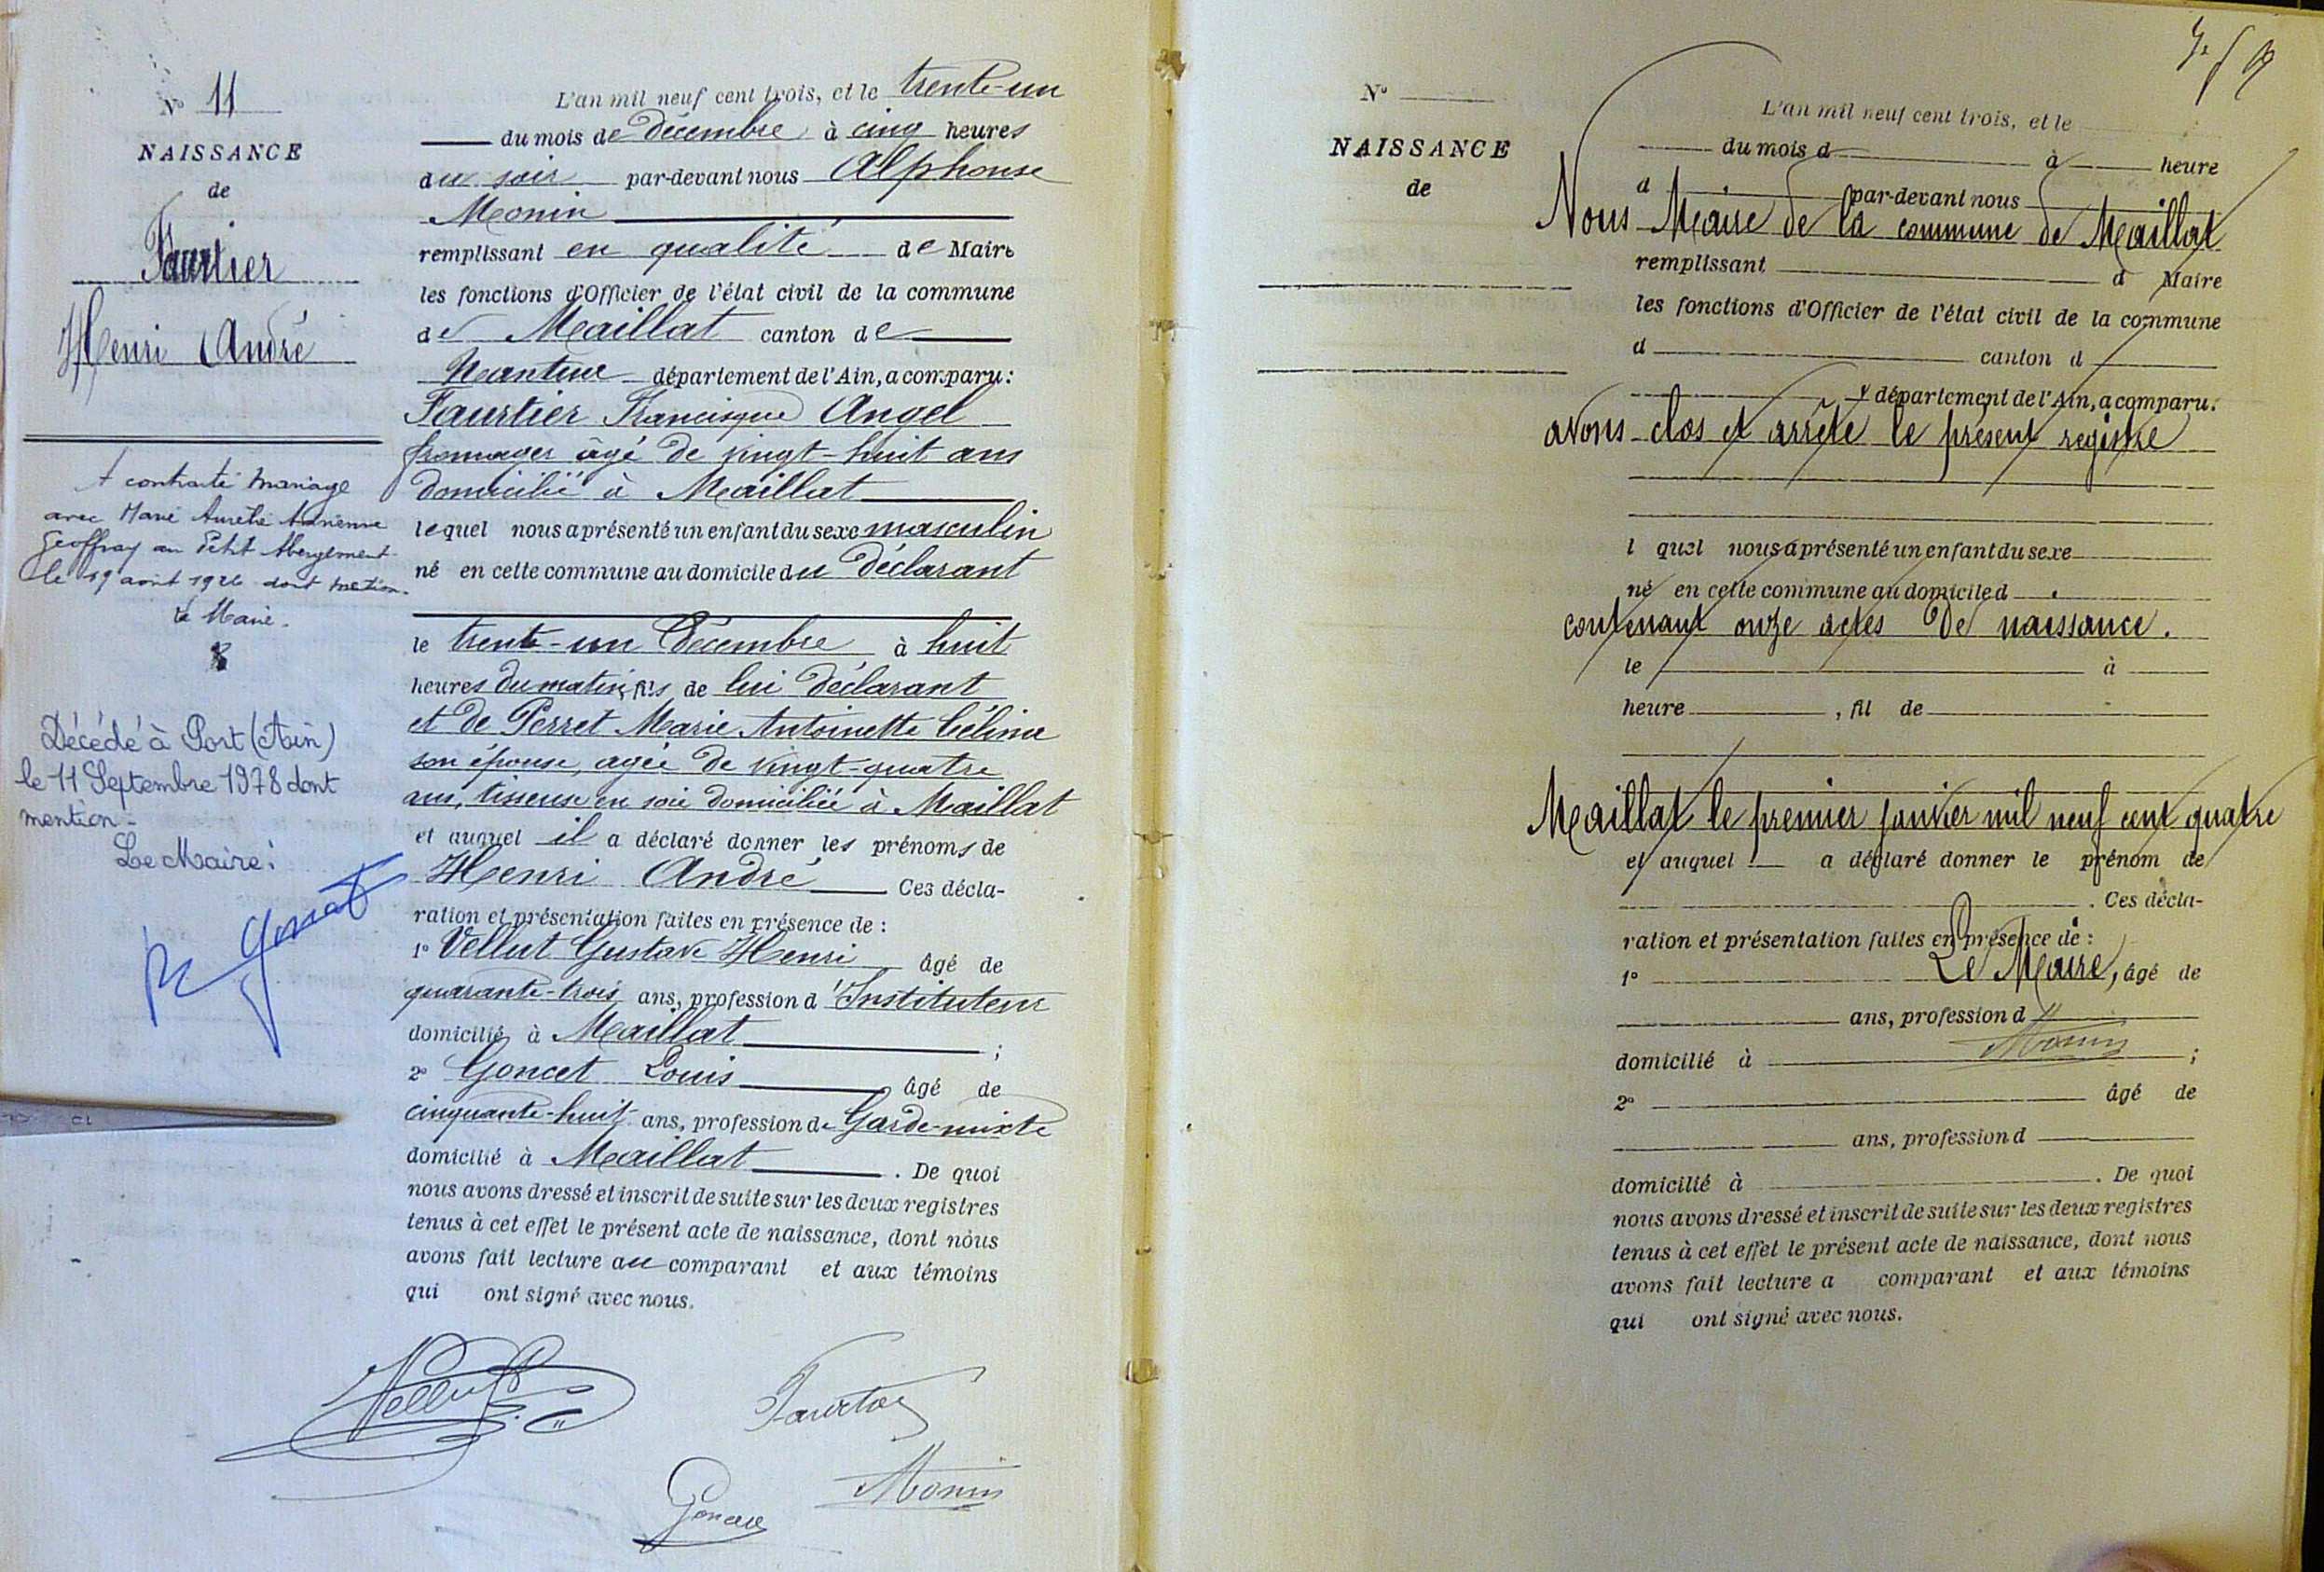 N° 11
NAISSANCE
de
Faurtier
Henri André
A contracté mariage
avec Marie Aurélie
Geoffray au Petit Abergement
le 19 août 1926 dont mention.
Le Maire.
Décédé à Port (Ain)
le 11 Septembre 1978 dont
mention -
Le Maire:
L'an mil neuf cent trois, et le trente-un
du mois de décembre à cinq heures
du soir par-devant nous Alphonse
Monin
remplissant en qualité de Maire
les fonctions d'Officier de l'état civil de la commune
de Maillat canton de
Nantua département de l'Ain, a comparu:
Faurtier Francisque Angel
fromager âgé de vingt-huit ans
domicilié à Maillat
lequel nous a présenté un enfant du sexe masculin
né en cette commune au domicile du déclarant
le trente-un Décembre à huit
heures du matin, fils de lui déclarant
et de Perret Marie Antoinette Célina
son épouse, agée de vingt-quatre
ans, tisseuse en soie domiciliée à Maillat
et auquel il a déclaré donner les prénoms de
Henri André Ces décla-
ration et présentation faites en présence de :
1° Vellut Gustave Henri âgé de
quarante-trois ans, profession d'Instituteur
domicilié à Maillat ;
2° Goncet Louis âgé de
cinquante-huit ans, profession de Garde-mixte
domicilié à Maillat . De quoi
nous avons dressé et inscrit de suite sur les deux registres
tenus à cet effet le présent acte de naissance, dont nous
avons fait lecture au comparant et aux témoins
qui ont signé avec nous.
Vellut
Faurtier
Goncet
Monin
N°
NAISSANCE
de
L'an mil neuf cent trois, et le
du mois d à heure
d par-devant nous
Nous Maire de la commune de Maillat
remplissant d Maire
les fonctions d'Officier de l'état civil de la commune
d canton d
département de l'Ain, a comparu:
avons clos et arrêté le présent registre
l quel nous a présenté un enfant du sexe
né en cette commune au domicile d
contenant onze actes de naissance.
le à
heure , fil de
Maillat le premier janvier mil neuf cent quatre
et auquel a déclaré donner le prénom de
. Ces décla-
ration et présentation faites en présence de :
Le Maire,
1° âgé de
ans, profession d
Monin
domicilié à ;
2° âgé de
ans, profession d
domicilié à . De quoi
nous avons dressé et inscrit de suite sur les deux registres
tenus à cet effet le présent acte de naissance, dont nous
avons fait lecture a comparant et aux témoins
qui ont signé avec nous.